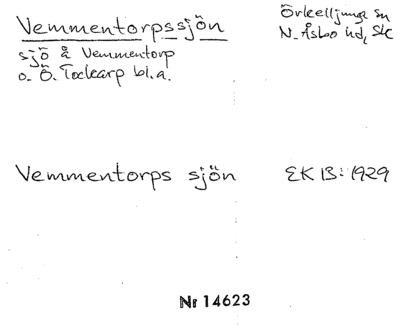 Vemmentorpssjön
Örkelljunga sn
N. Åsbo hd, Sk
sjö å Vemmentorp
o. Ö. Tockarp bl.a.
Vemmentorps sjön
EK 13: 1929
Nr 14623